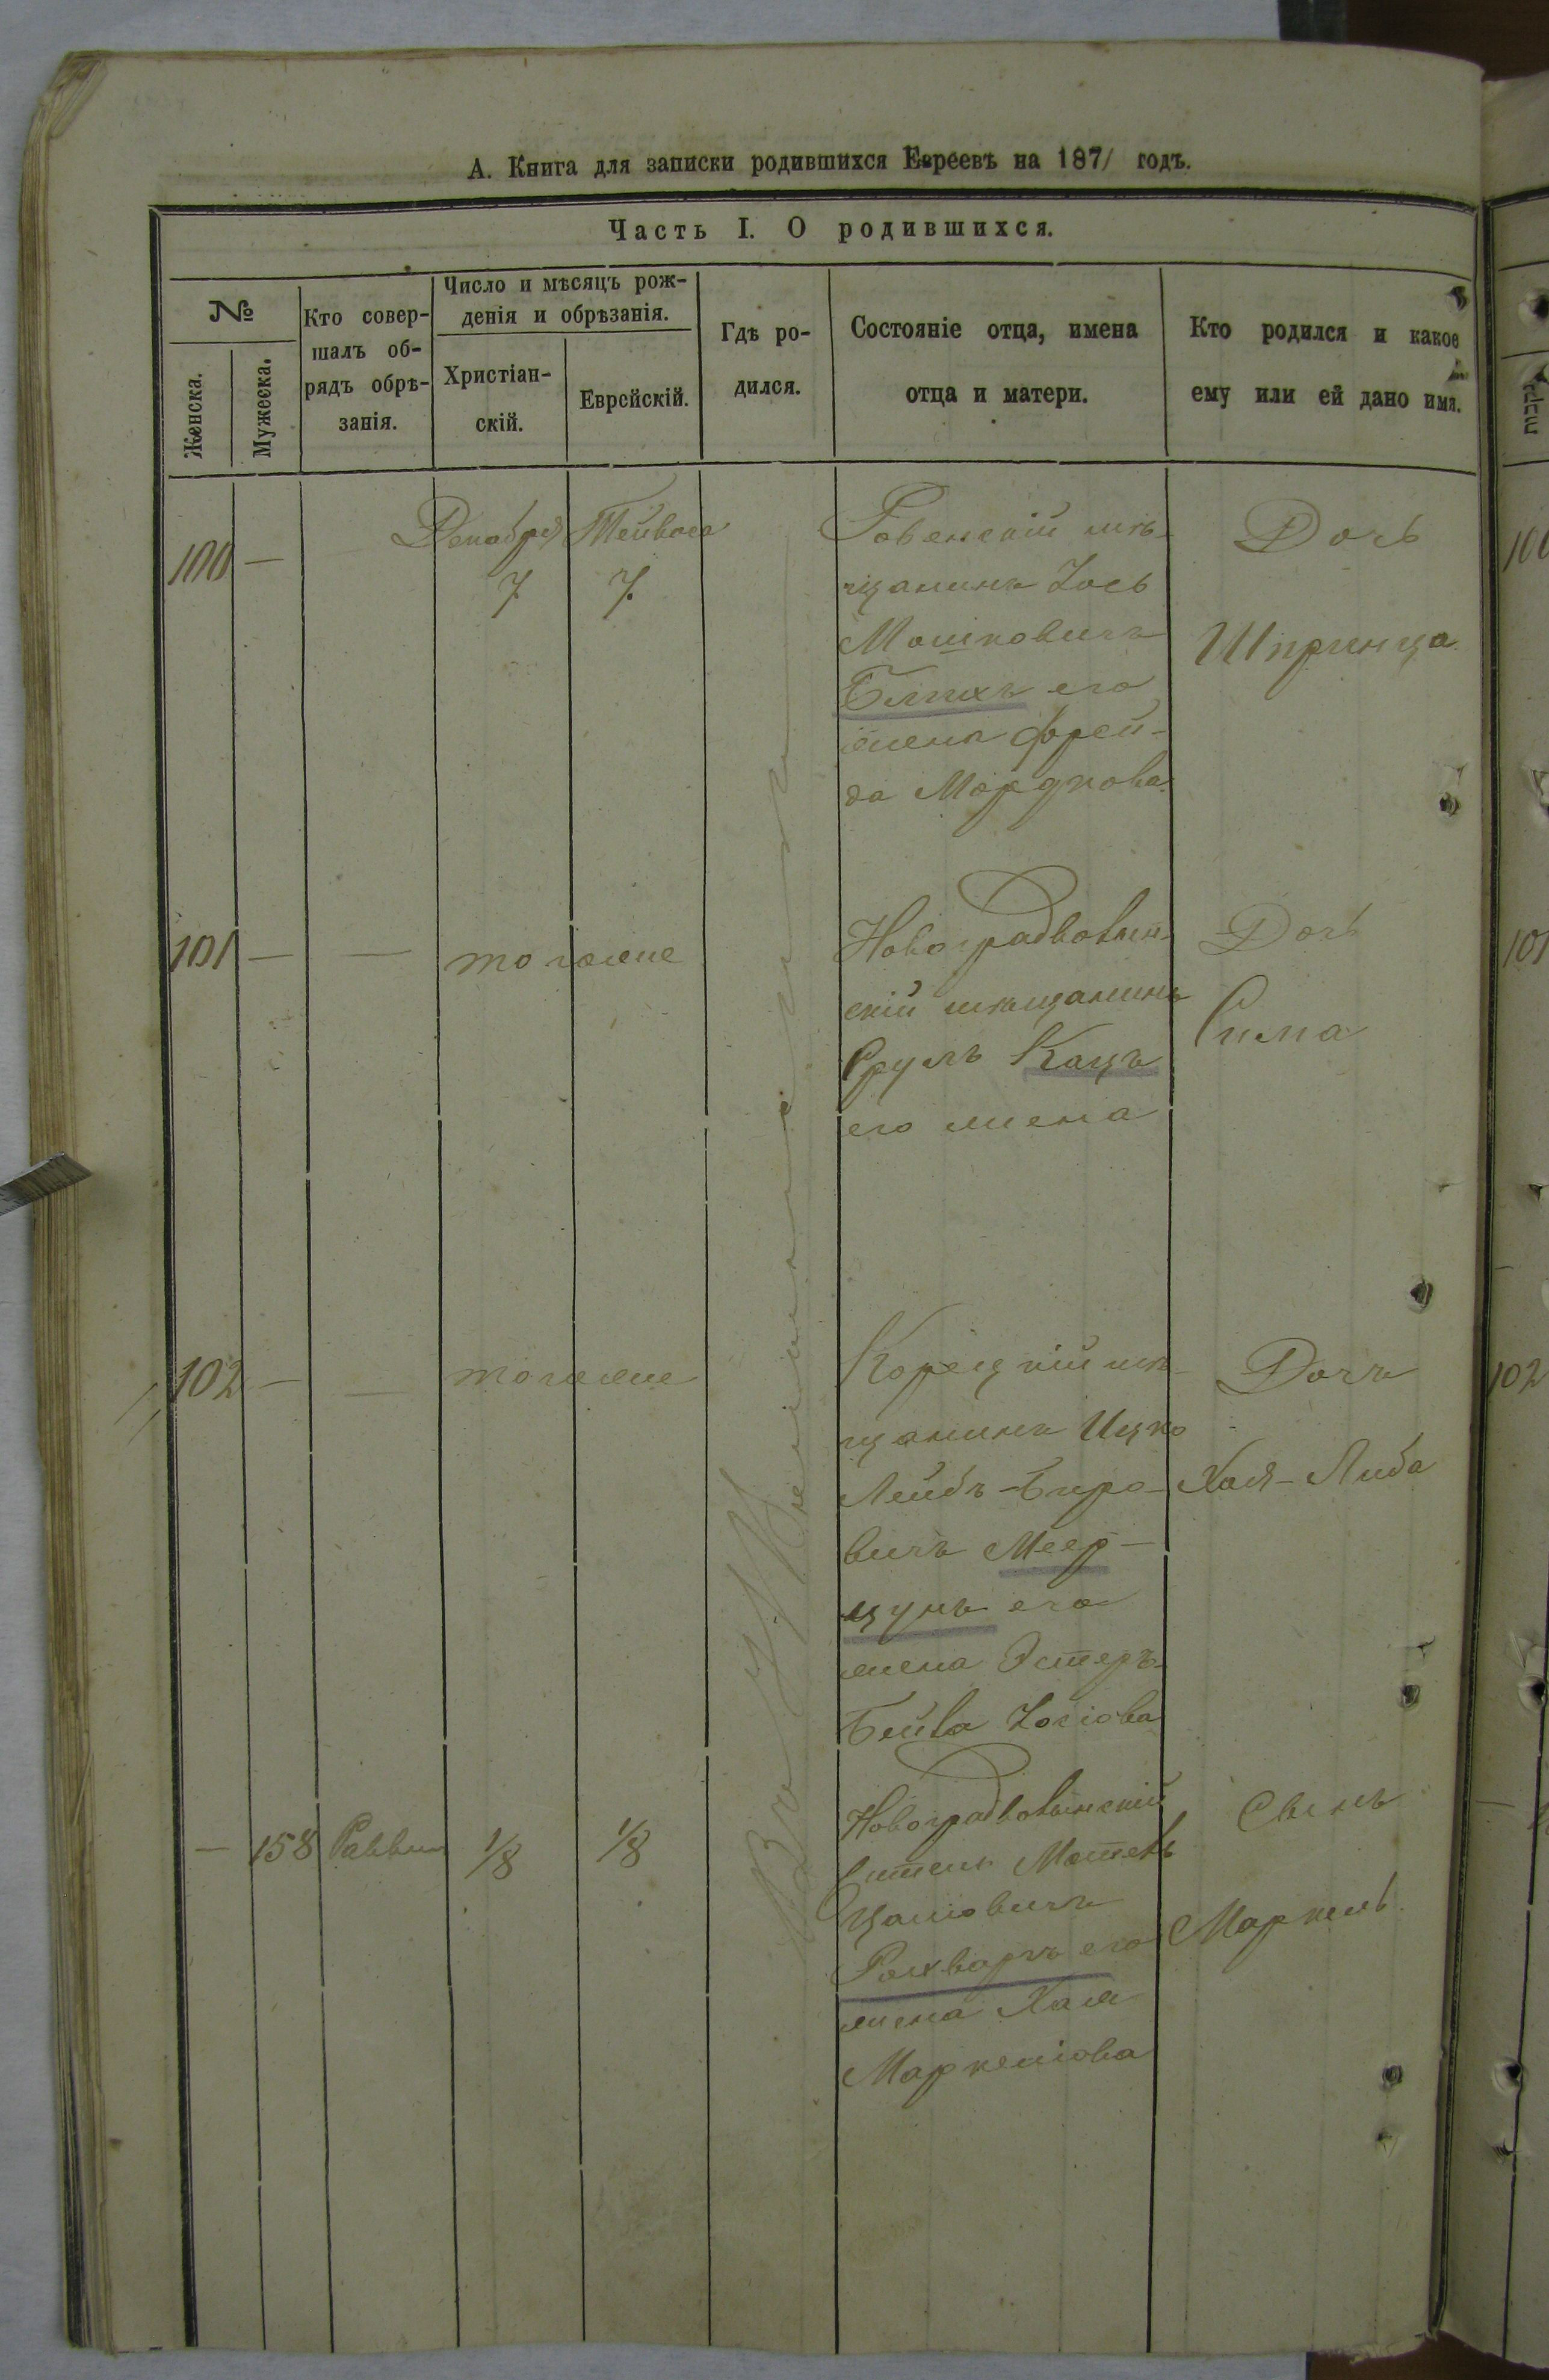 А. Книга для записки родившихся Евреевъ на 1871 годъ.
Часть I. О родившихся.
№
Женска.
Мужеска.
Кто совер-
шалъ об-
рядъ обрѣ-
занія.
Число и мѣсяцъ рож-
денія и обрѣзанія.
Христіан-
скій.
Еврейскій.
Гдѣ ро-
дился.
Состояніе отца, имена
отца и матери.
Кто родился и какое
ему или ей дано имя.
100 —
Декабря Тейвеса
7. 7.
Ровенскій мѣ-
щанинъ Іось
Мошковичъ
его
жена Фрей-
да Мордкова.
Дочь
Шпринца
100
101 — — тогоже
Новоградволын-
скій мѣщанинъ
Сруль Кацъ
его жена
Дочь
Сима
101
102 — — тогоже
Корецкій мѣ-
щанинъ Ицко
Лейбъ-Беро-
вичъ Меер-
цунъ его
жена Эстеръ-
Бейла Іосіова
Дочъ
Хая-Либа
102
— 158 Раввин 1/8 1/8
Новоградволынскій
Мотель
Ройхваргъ его
жена Хая
Маркеліова
Сынъ
Маркель.